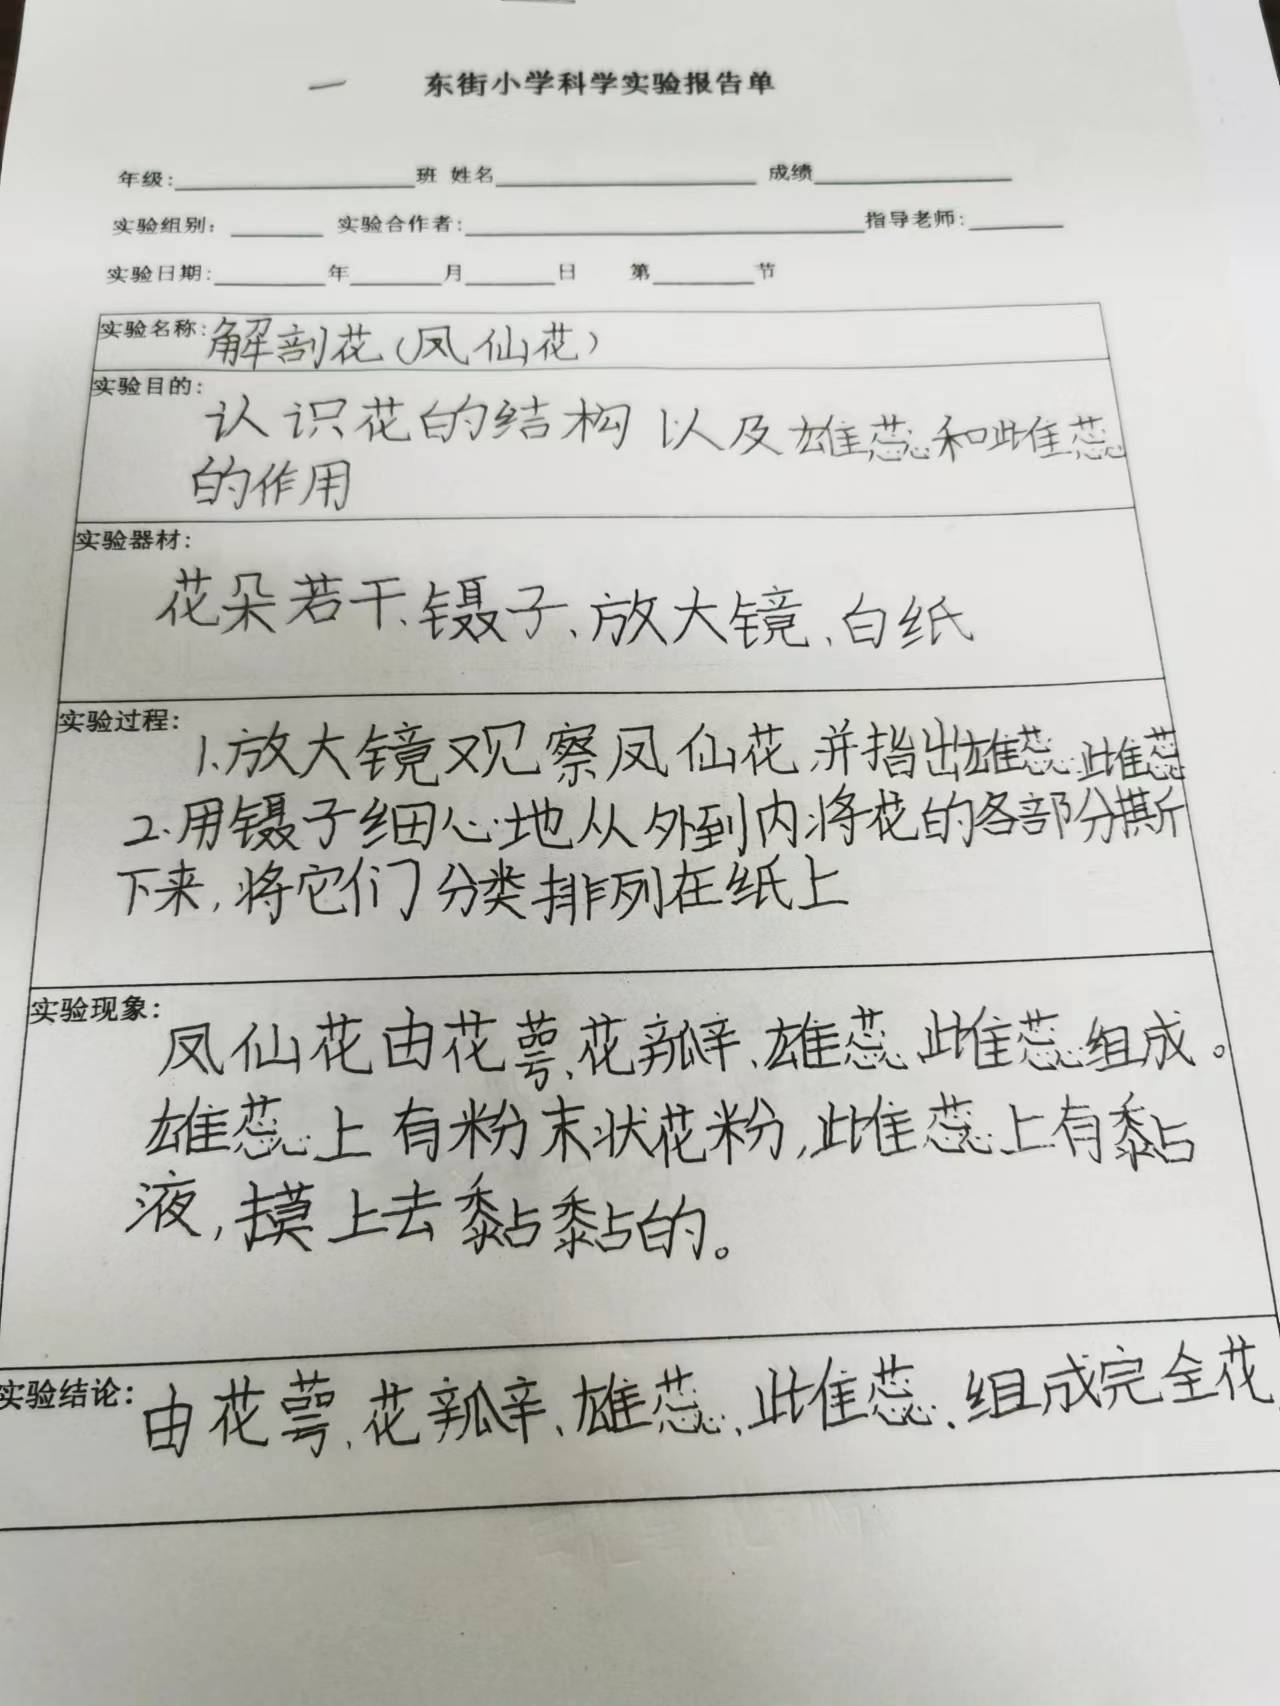 一 东街小学科学实验报告单
年级:____班 姓名____ 成绩____
实验组别: ____ 实验合作者:____指导老师:____
实验日期:____年____月____日 第____节
实验名称: 解剖花(凤仙花)
实验目的:
认识花的结构 以及雄蕊和雌蕊
的作用
实验器材:
花朵若干、镊子、放大镜、白纸
实验过程:
1.放大镜观察凤仙花,并指出雄蕊、雌蕊
2.用镊子细心地从外到内将花的各部分撕
下来,将它们分类排列在纸上
实验现象:
凤仙花由花萼、花瓣、雄蕊、雌蕊组成。
雄蕊上有粉末状花粉,雌蕊上有黏
液,摸上去黏黏的。
实验结论: 由花萼、花瓣、雄蕊、雌蕊、组成完全花